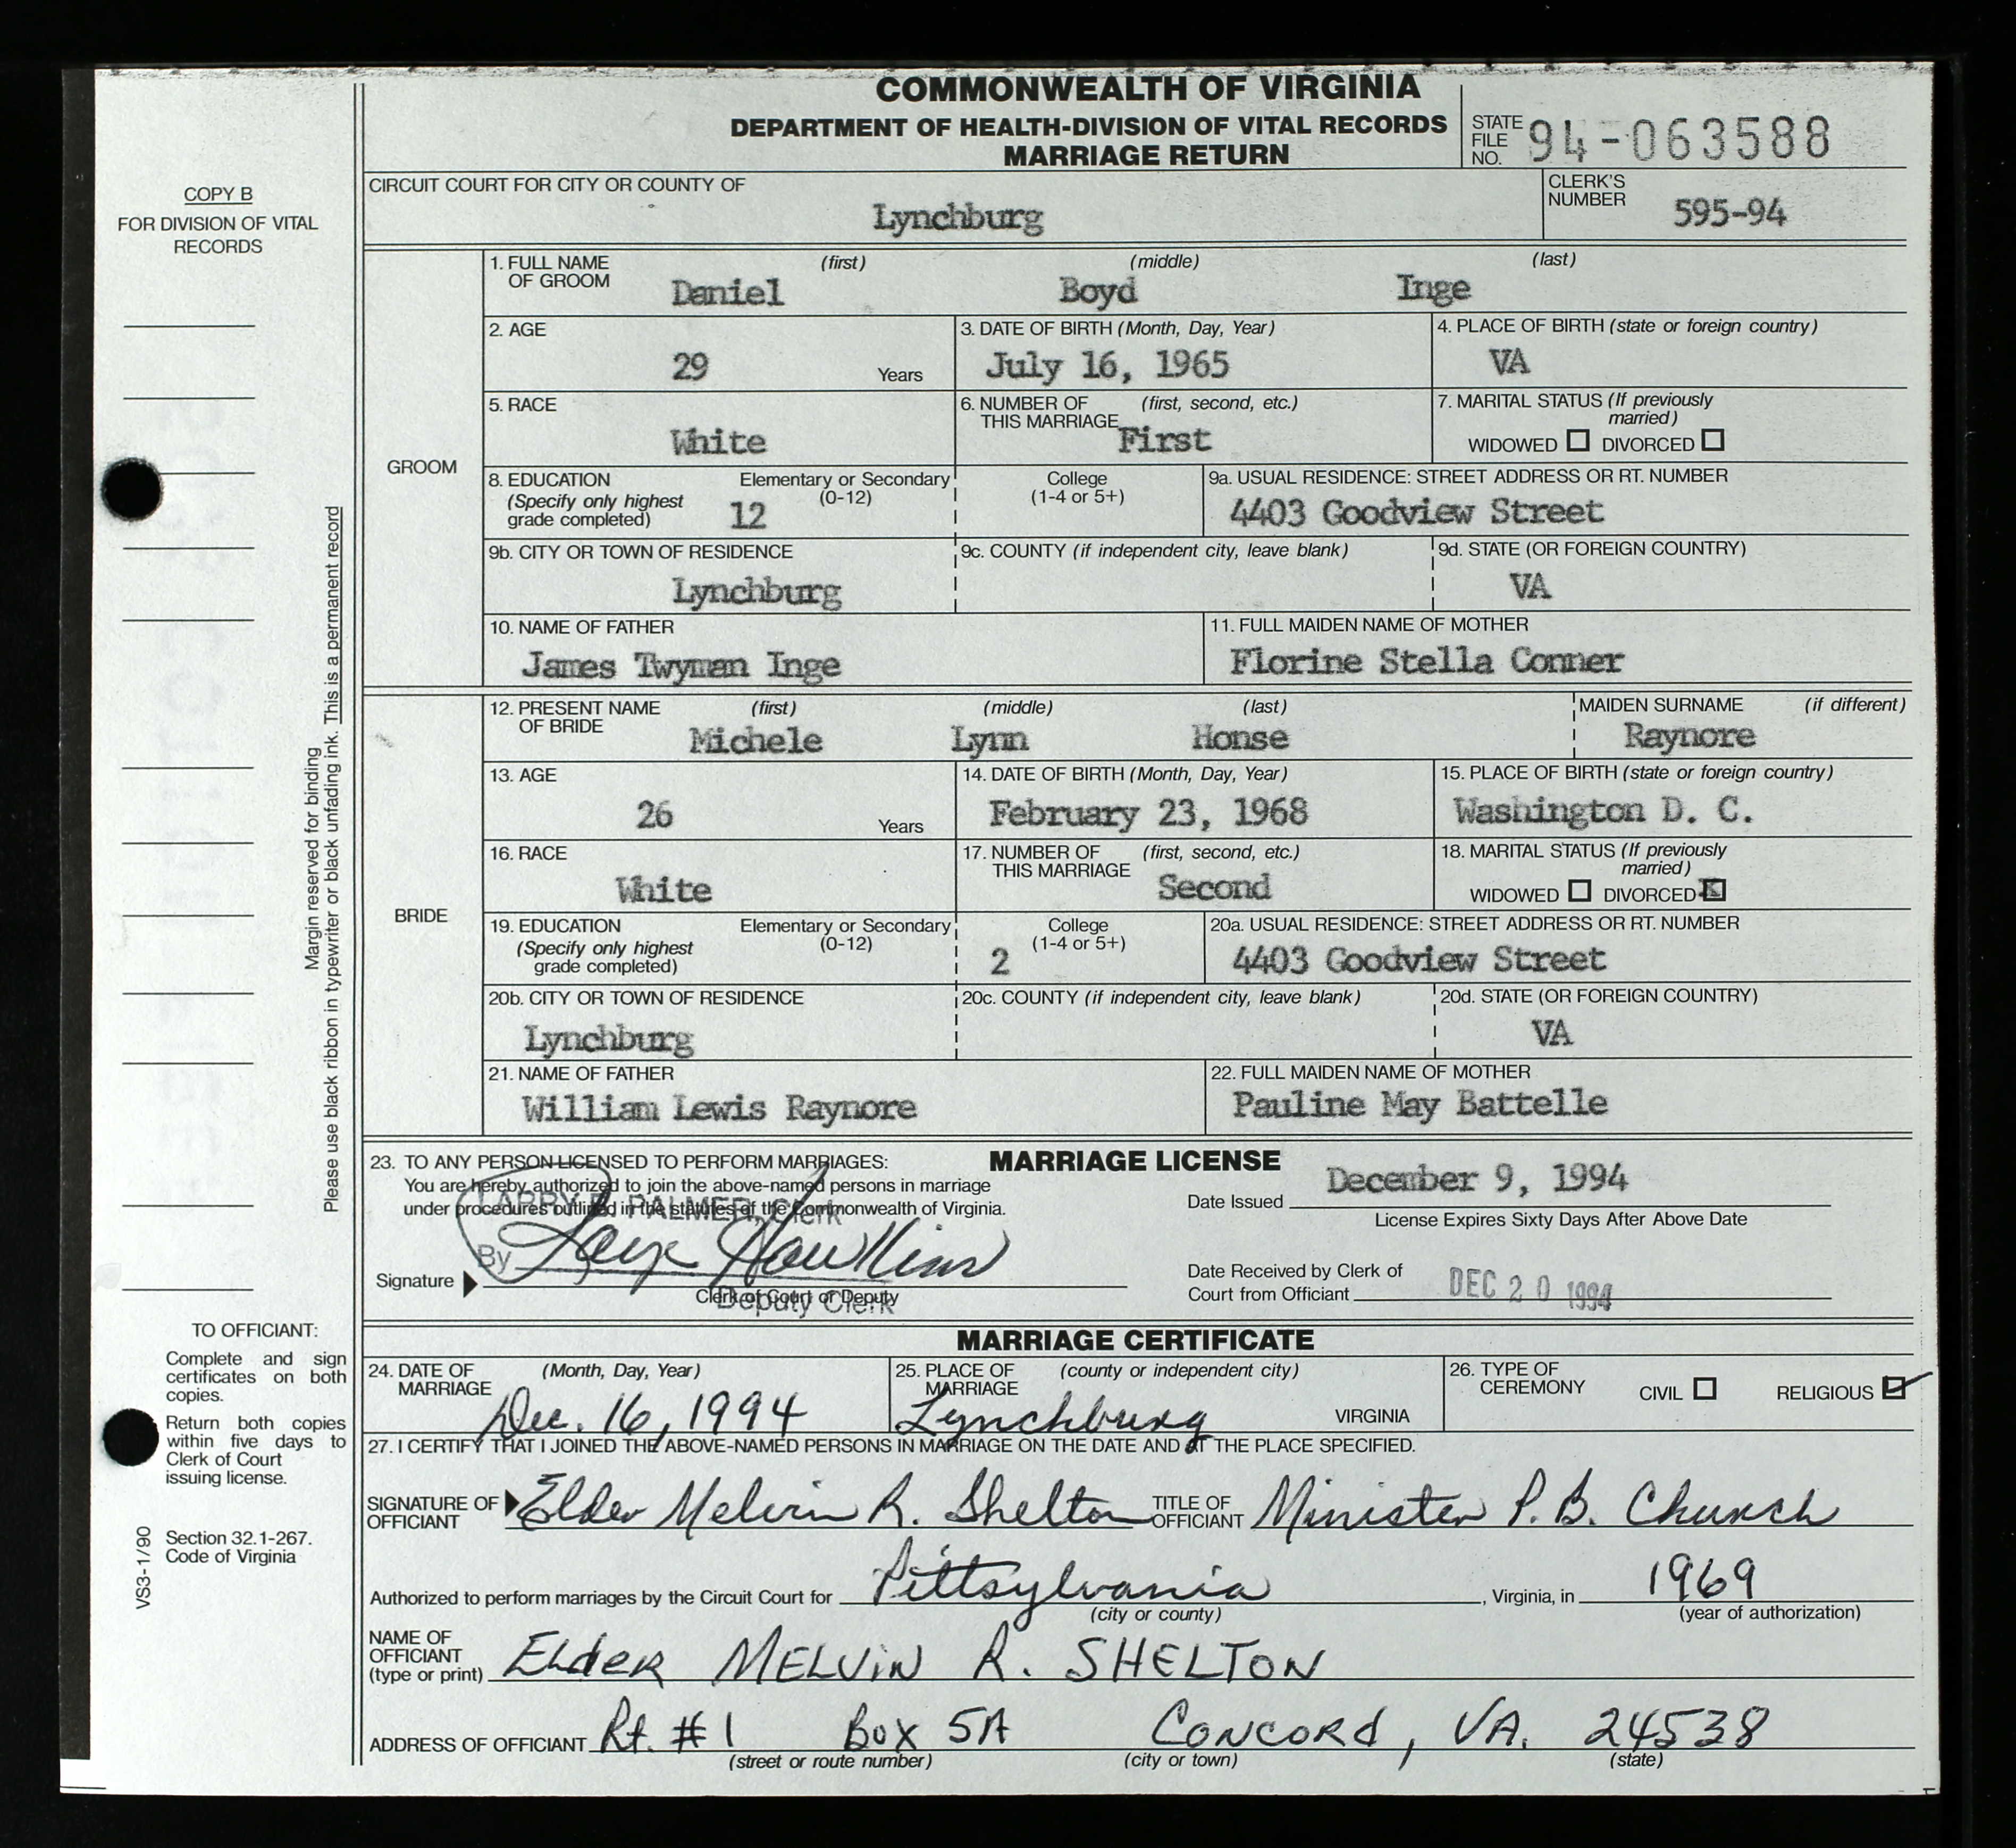 COMMONWEALTH OF VIRGINIA
DEPARTMENT OF HEALTH-DIVISION OF VITAL RECORDS
MARRIAGE RETURN
STATE FILE NO. 94-063588
COPY B
FOR DIVISION OF VITAL RECORDS
CIRCUIT COURT FOR CITY OR COUNTY OF Lynchburg
CLERK'S NUMBER 595-94
GROOM
1. FULL NAME OF GROOM (first) Daniel (middle) Boyd (last) Inge
2. AGE 29 Years
3. DATE OF BIRTH (Month, Day, Year) July 16, 1965
4. PLACE OF BIRTH (state or foreign country) VA
5. RACE White
6. NUMBER OF THIS MARRIAGE (first, second, etc.) First
7. MARITAL STATUS (If previously married) WIDOWED ☐ DIVORCED ☐
8. EDUCATION (Specify only highest grade completed) Elementary or Secondary (0-12) 12 College (1-4 or 5+)
9a. USUAL RESIDENCE: STREET ADDRESS OR RT. NUMBER 4403 Goodview Street
9b. CITY OR TOWN OF RESIDENCE Lynchburg
9c. COUNTY (if independent city, leave blank)
9d. STATE (OR FOREIGN COUNTRY) VA
10. NAME OF FATHER James Twyman Inge
11. FULL MAIDEN NAME OF MOTHER Florine Stella Conner
BRIDE
12. PRESENT NAME OF BRIDE (first) Michele (middle) Lynn (last) Honse MAIDEN SURNAME (if different) Raynore
13. AGE 26 Years
14. DATE OF BIRTH (Month, Day, Year) February 23, 1968
15. PLACE OF BIRTH (state or foreign country) Washington D. C.
16. RACE White
17. NUMBER OF THIS MARRIAGE (first, second, etc.) Second
18. MARITAL STATUS (If previously married) WIDOWED ☐ DIVORCED ☒
19. EDUCATION (Specify only highest grade completed) Elementary or Secondary (0-12) College (1-4 or 5+) 2
20a. USUAL RESIDENCE: STREET ADDRESS OR RT. NUMBER 4403 Goodview Street
20b. CITY OR TOWN OF RESIDENCE Lynchburg
20c. COUNTY (if independent city, leave blank)
20d. STATE (OR FOREIGN COUNTRY) VA
21. NAME OF FATHER William Lewis Raynore
22. FULL MAIDEN NAME OF MOTHER Pauline May Battelle
23. TO ANY PERSON LICENSED TO PERFORM MARRIAGES:
You are hereby authorized to join the above-named persons in marriage
under procedures outlined in the statutes of the Commonwealth of Virginia.
MARRIAGE LICENSE
Date Issued December 9, 1994
License Expires Sixty Days After Above Date
LARRY B. PALMER, Clerk
By Faye Hawkins
Signature
Clerk of Court or Deputy
Deputy Clerk
Date Received by Clerk of Court from Officiant DEC 20 1994
MARRIAGE CERTIFICATE
24. DATE OF MARRIAGE (Month, Day, Year) Dec. 16, 1994
25. PLACE OF MARRIAGE (county or independent city) Lynchburg VIRGINIA
26. TYPE OF CEREMONY CIVIL ☐ RELIGIOUS ☑
27. I CERTIFY THAT I JOINED THE ABOVE-NAMED PERSONS IN MARRIAGE ON THE DATE AND AT THE PLACE SPECIFIED.
SIGNATURE OF OFFICIANT Elder Melvin R. Shelton TITLE OF OFFICIANT Minister P.B. Church
Authorized to perform marriages by the Circuit Court for Pittsylvania, Virginia, in 1969
(city or county) (year of authorization)
NAME OF OFFICIANT (type or print) Elder MELVIN R. SHELTON
ADDRESS OF OFFICIANT Rt. #1 Box 5A CONCORD, VA. 24538
(street or route number) (city or town) (state)
Margin reserved for binding
Please use black ribbon in typewriter or black unfading ink. This is a permanent record
TO OFFICIANT:
Complete and sign
certificates on both
copies.
Return both copies
within five days to
Clerk of Court
issuing license.
Section 32.1-267.
Code of Virginia
VS3-1/90